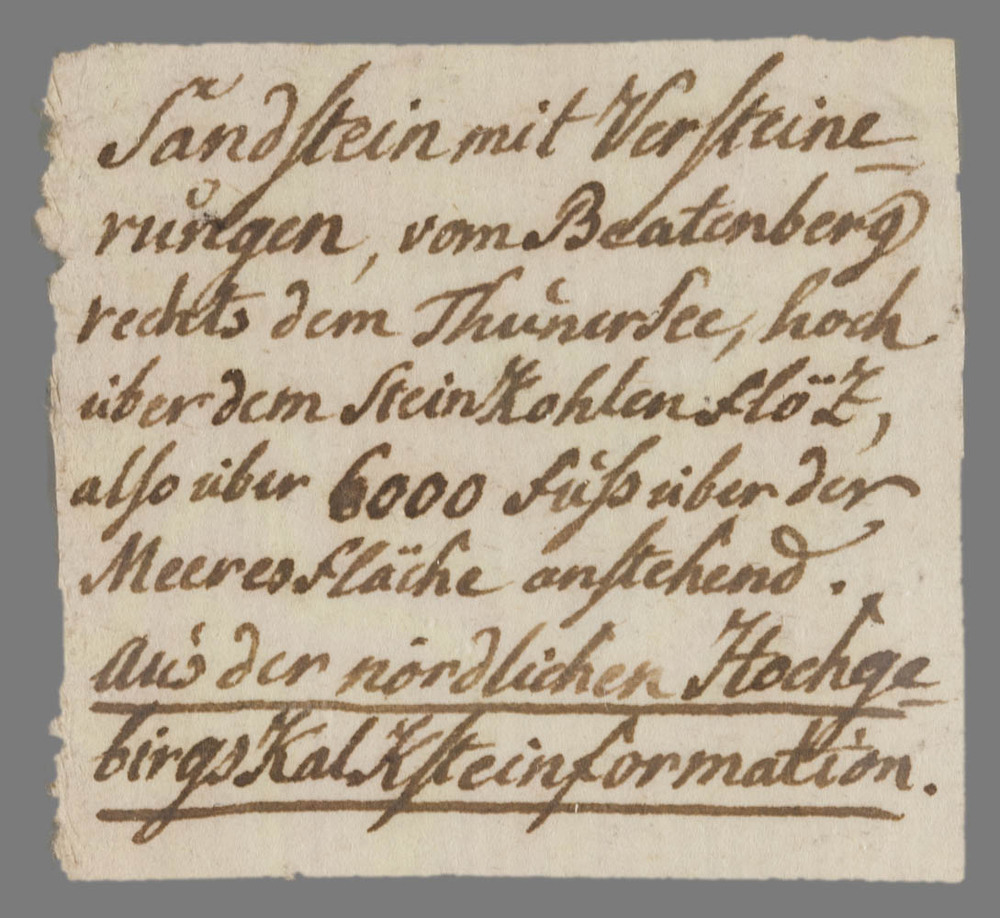 Sandstein mit Versteine-
rungen, vom Beatenberg
rechts dem ThunerSee, hoch
über dem SteinKohlen flöZ,
also über 6000 fuss über der
Meeresfläche anstehend.
aus der nördlichen Hochge-
birgsKalKsteinformation.